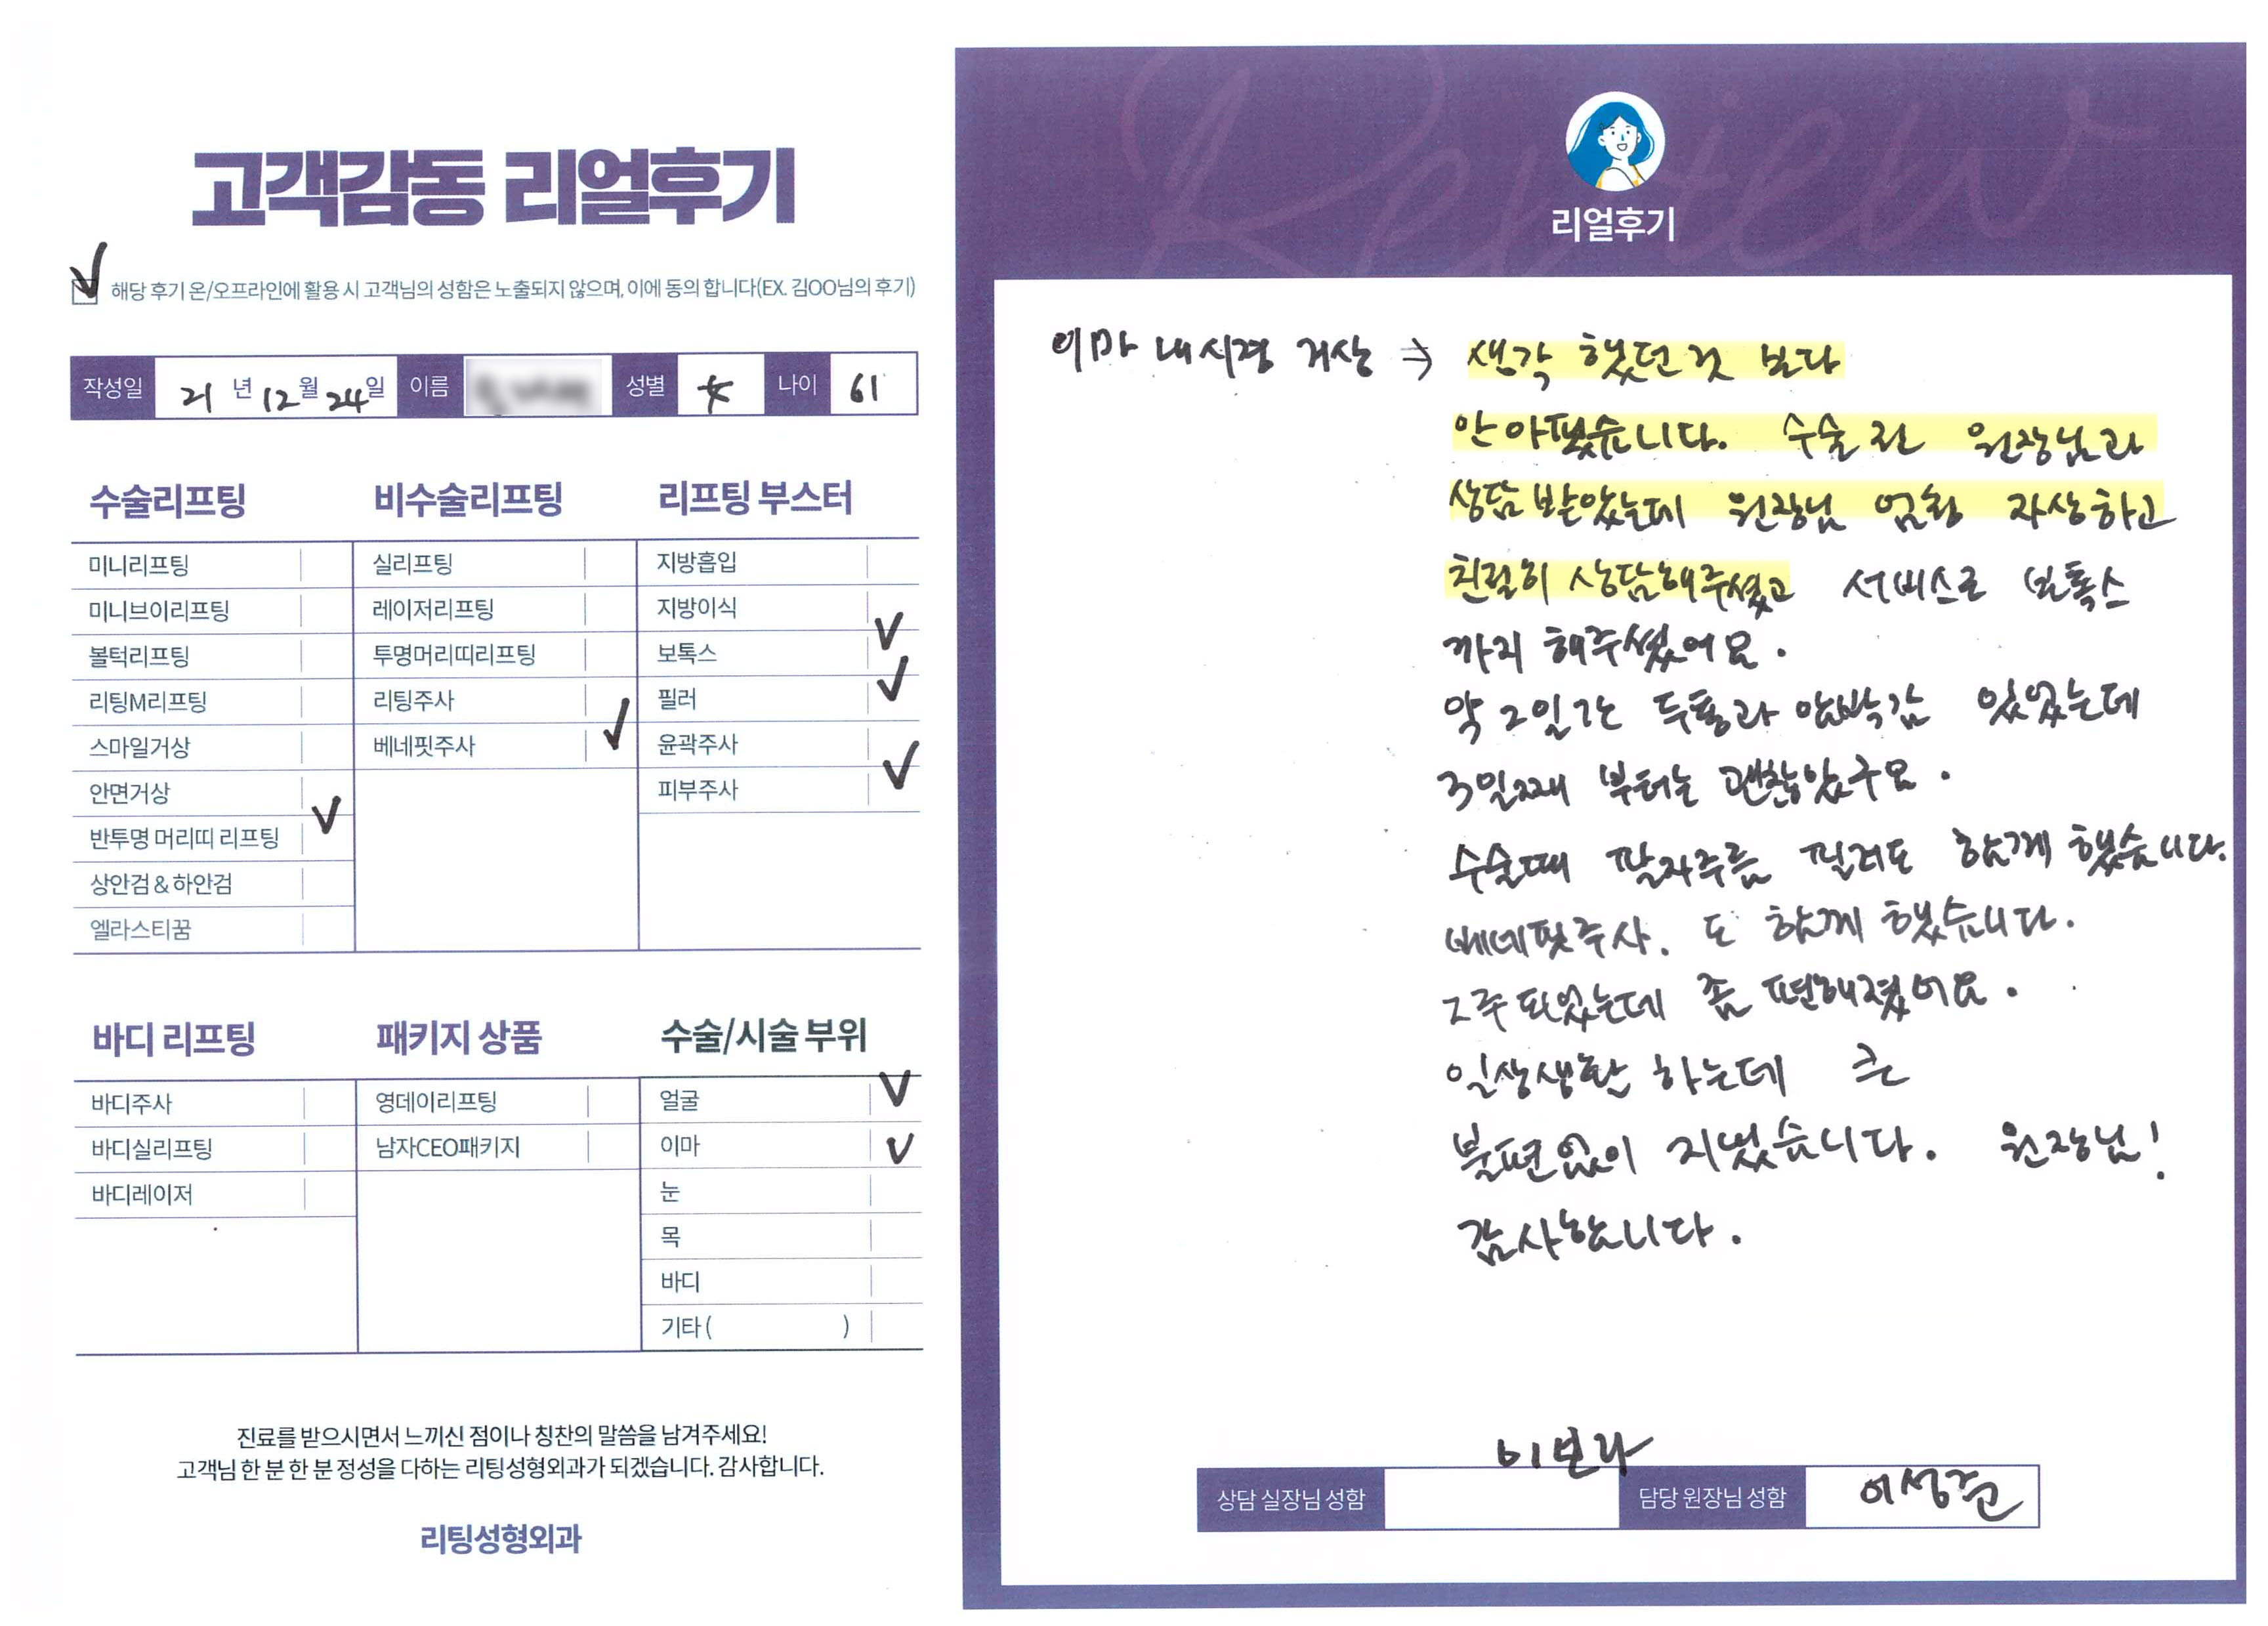 고객감동 리얼후기
✓ 해당 후기 온/오프라인에 활용 시 고객님의 성함은 노출되지 않으며, 이에 동의 합니다(EX. 김OO님의 후기)
작성일 21 년 12 월 24 일 이름 성별 女 나이 61
수술리프팅
미니리프팅
미니브이리프팅
볼턱리프팅
리팅M리프팅
스마일거상
안면거상
반투명 머리띠 리프팅 ✓
상안검 & 하안검
엘라스티꿈
비수술리프팅
실리프팅
레이저리프팅
투명머리띠리프팅
리팅주사
베네핏주사 ✓
리프팅 부스터
지방흡입
지방이식
보톡스 ✓
필러 ✓
윤곽주사
피부주사 ✓
바디 리프팅
바디주사
바디실리프팅
바디레이저
패키지 상품
영데이리프팅
남자CEO패키지
수술/시술 부위
얼굴 ✓
이마 ✓
눈
목
바디
기타 ( )
진료를 받으시면서 느끼신 점이나 칭찬의 말씀을 남겨주세요!
고객님 한 분 한 분 정성을 다하는 리팅성형외과가 되겠습니다. 감사합니다.
리팅성형외과
Review
리얼후기
이마 내시경 거상 → 생각 했던것 보다
안아팠습니다. 수술 전 원장님과
상담 받았는데 원장님 엄청 자상하고
친절히 상담해주셨고 서비스로 보톡스
까지 해주셨어요.
약 2일간 두통과 압박감 있었는데
3일째 부터는 괜찮았구요.
수술때 팔자주름 필러도 함께 했습니다.
베네핏주사. 도 함께 했습니다.
2주 되었는데 좀 편해졌어요.
일상생활 하는데 큰
불편없이 지냈습니다. 원장님!
감사합니다.
상담 실장님 성함 이보라 담당 원장님 성함 이성준